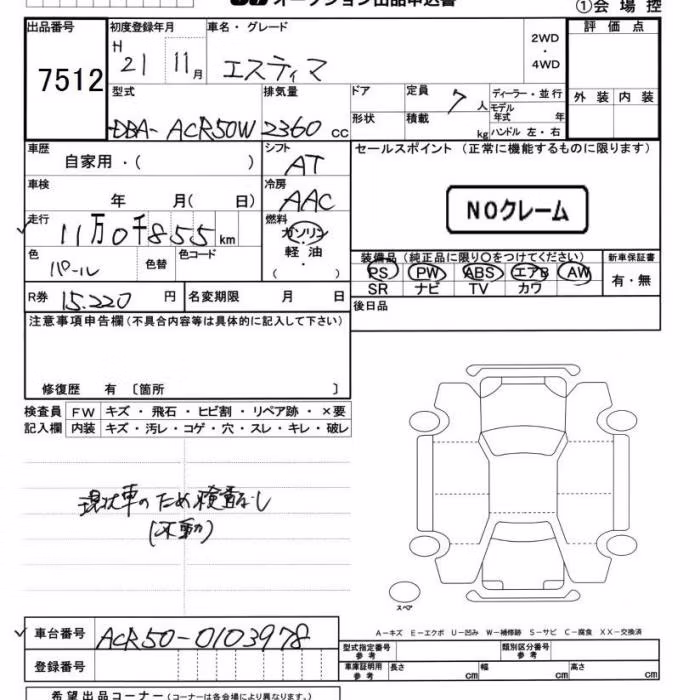 オークション出品申込書
①会場控
出品番号 初度登録年月 車名・グレード 評価点
7512 H 21 11月 エスティマ 2WD・4WD
型式 排気量 ドア 定員 7人 ディーラー・並行 外装 内装
DBA-ACR50W 2360cc 形状 積載 kg モデル年式 年 ハンドル 左・右
車歴 シフト セールスポイント (正常に機能するものに限ります)
自家用・( ) AT
車検 冷房
年 月( 日) AAC NOクレーム
走行 燃料
✓ 11万0千855km ガソリン
色 色替 色コード 軽油 装備品 (純正品に限り○をつけてください) 新車保証書
パール (・) PS PW ABS エアB AW 有・無
SR ナビ TV カワ
R券 15.220円 名変期限 月 日 後日品
注意事項申告欄(不具合内容等は具体的に記入して下さい)
修復歴 有〔箇所 〕
検査員 FW キズ・飛石・ヒビ割・リペア跡・×要
記入欄 内装 キズ・汚レ・コゲ・穴・スレ・キレ・破レ
現状車のため検査なし
(不動)
スペア
✓ 車台番号 ACR50-0103978
A-キズ E-エクボ U-凹み W-補修跡 S-サビ C-腐食 XX-交換済
型式指定番号 参考 類別区分番号 参考
登録番号 車庫証明用 参考 長さ cm 幅 cm 高さ cm
希望出品コーナー(コーナーは各会場により異なります。)